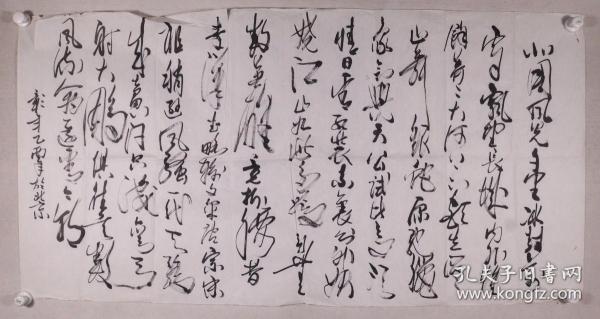 北国风光千里冰封万里
雪飘望长城内外惟
余莽莽大河上下顿失滔滔
山舞银蛇原驰蜡
象欲与天公试比高须
晴日看红装素裹分外妖
娆江山如此多娇引无
数英雄竞折腰昔
秦皇汉武略输文采唐宗宋
祖稍逊风骚一代天骄
成吉思汗只识弯弓
射大雕俱往矣数
风流人物还看今朝
孔夫子旧书网
www.kongfz.com